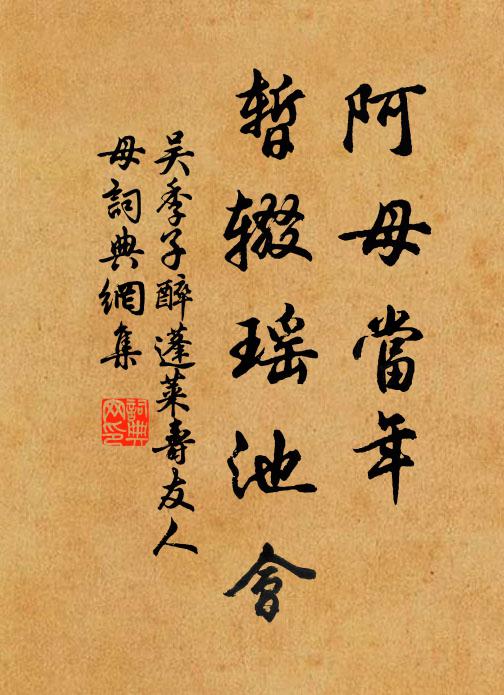 阿母當年
暫辍瑶池會
吴季子醉蓬萊壽友人
母詞典網集
詞典
网印